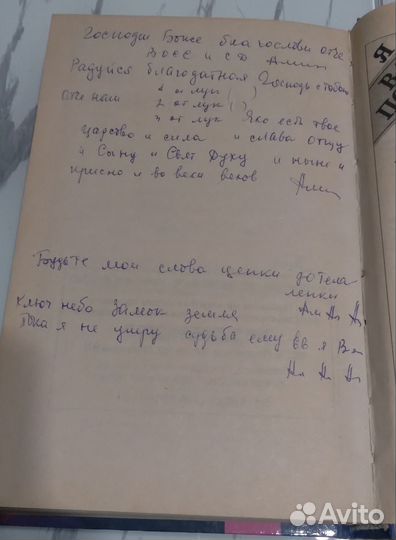 Господи Боже благослови отче
Воее и с D Аминь
Радуйся благодатная Господь с тобою
отче наш 1 от лук ( )
2 от лук ( )
3 от лук Яко есть твое
царство и сила и слава Отцу
и Сыну и Свят Духу и ныне и
присно и во веки веков Аминь
Будьте мои слова цепки до тела
лепки
Ключ небо Замок земля Ам Ам Ам
Пока я не умру судьба ему
Ам Ам Ам
Я
В
ПО
Avito